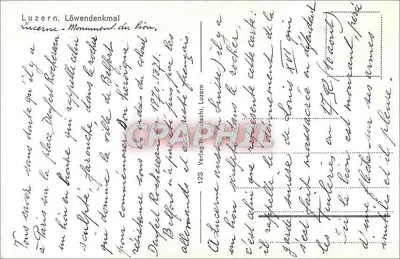 Luzern. Löwendenkmal
Lucerne - Monument du lion.
Vous savez sans doute qu'il y a
à Paris sur la place Denfert Rochereau
un lion en bronze qui rappelle celui
sculpté, farouche, dans le rocher
qui domine la ville de Belfort
pour commémorer l'héroïque
résistance sous les ordres du colonel
Denfert Rochereau en 1870-1871.
Belfort n'a pas été pris par les
allemands et est resté français
A Lucerne en Suisse) il y a
un lion sculpté dans le rocher,
c'est celui que représente cette carte:
il rappelle le dévouement de la
garde suisse de Louis XVI qui
s'est fait massacrer en défendant
les Tuileries en 92 (10 août)
le lion est mourant, percé
d'une flèche sur ses armes
inutiles et il pleure.
123 Verlag Luzern
CPAPHIL